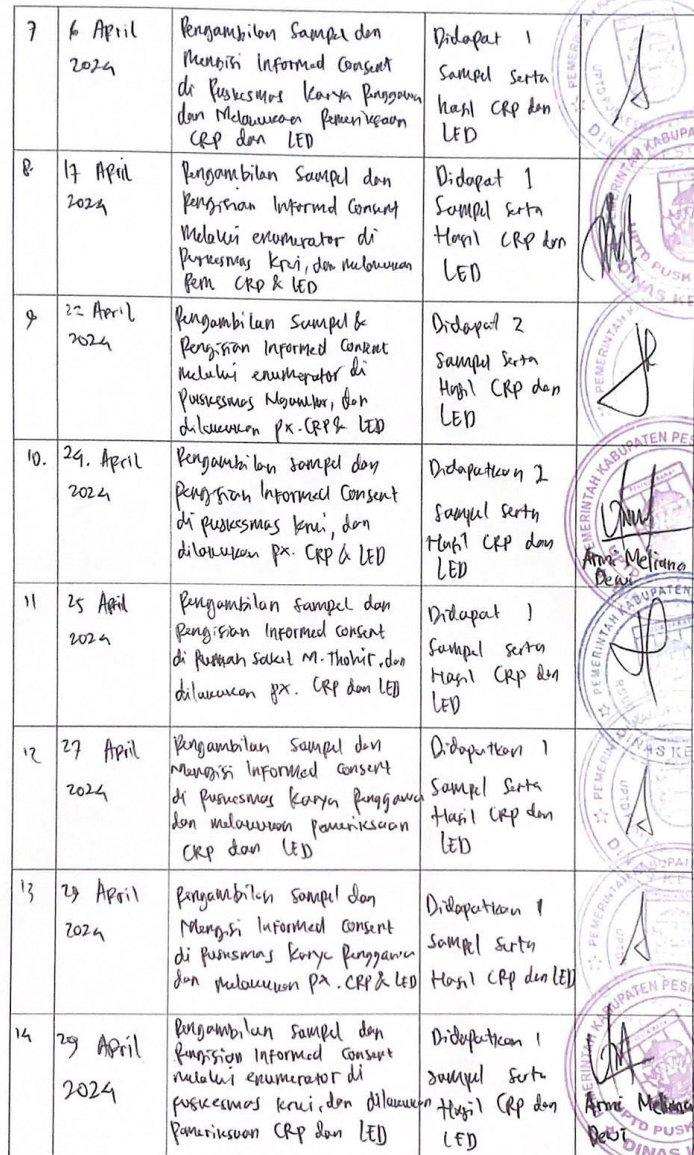 7
6 April
2024
Pengambilan Sampel dan
Mengisi Informed Consent
di Puskesmas Karya Penggawa
dan Melakukan Pemeriksaan
CRP dan LED
Didapat 1
Sampel Serta
hasil CRP dan
LED
8.
17 April
2024
Pengambilan Sampel dan
Pengisian Informed Consent
Melalui enumerator di
Puskesmas Krui, dan melakukan
Pem CRP & LED
Didapat 1
Sampel serta
Hasil CRP dan
LED
9
22 April
2024
Pengambilan Sampel &
Pengisian Informed Consent
melalui enumerator di
Puskesmas Ngambur, dan
dilakukan px. CRP & LED
Didapat 2
Sampel serta
Hasil CRP dan
LED
10.
24. April
2024
Pengambilan sampel dan
Pengisian Informed Consent
di puskesmas krui, dan
dilakukan px. CRP & LED
Didapatkan 2
Sampel Serta
Hasil CRP dan
LED
Armi Meliana
Dewi
11
25 April
2024
Pengambilan sampel dan
Pengisian Informed consent
di Rumah Sakit M. Thohir, dan
dilakukan px. CRP dan LED
Didapat 1
Sampel serta
Hasil CRP dan
LED
12
27 April
2024
Pengambilan Sampel dan
Mengisi Informed consent
di Puskesmas Karya Penggawa
dan melakukan pemeriksaan
CRP dan LED
Didapatkan 1
Sampel Serta
Hasil CRP dan
LED
13
29 April
2024
Pengambilan Sampel dan
Mengisi Informed consent
di Puskesmas Karya Penggawa
dan melakukan px. CRP & LED
Didapatkan 1
Sampel Serta
Hasil CRP dan LED
14
29 April
2024
Pengambilan Sampel dan
Pengisian Informed Consent
melalui enumerator di
puskesmas krui, dan dilakukan
Pemeriksaan CRP dan LED
Didapatkan 1
Sampel Serta
Hasil CRP dan
LED
Armi Meliana
Dewi